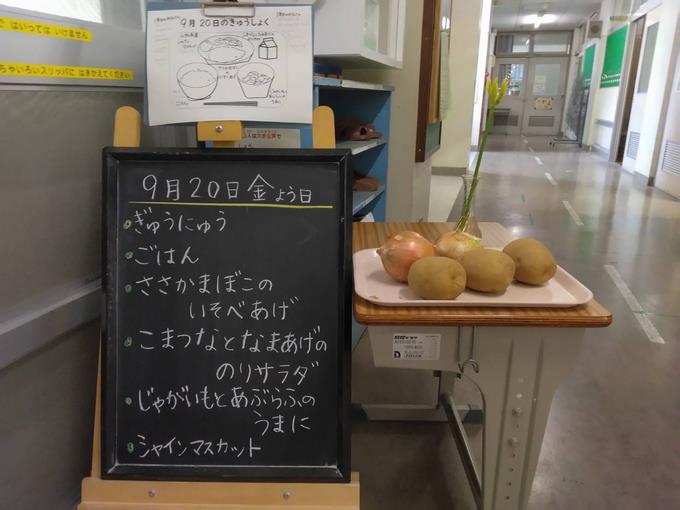 はいっては いけません
ちゃいろいスリッパに はきかえてください
9月20日のきゅうしょく
ごはん
9月20日金よう日
ぎゅうにゅう
ごはん
ささかまぼこの
いそべあげ
こまつなとなまあげの
のりサラダ
じゃがいもとあぶらふの
うまに
シャインマスカット